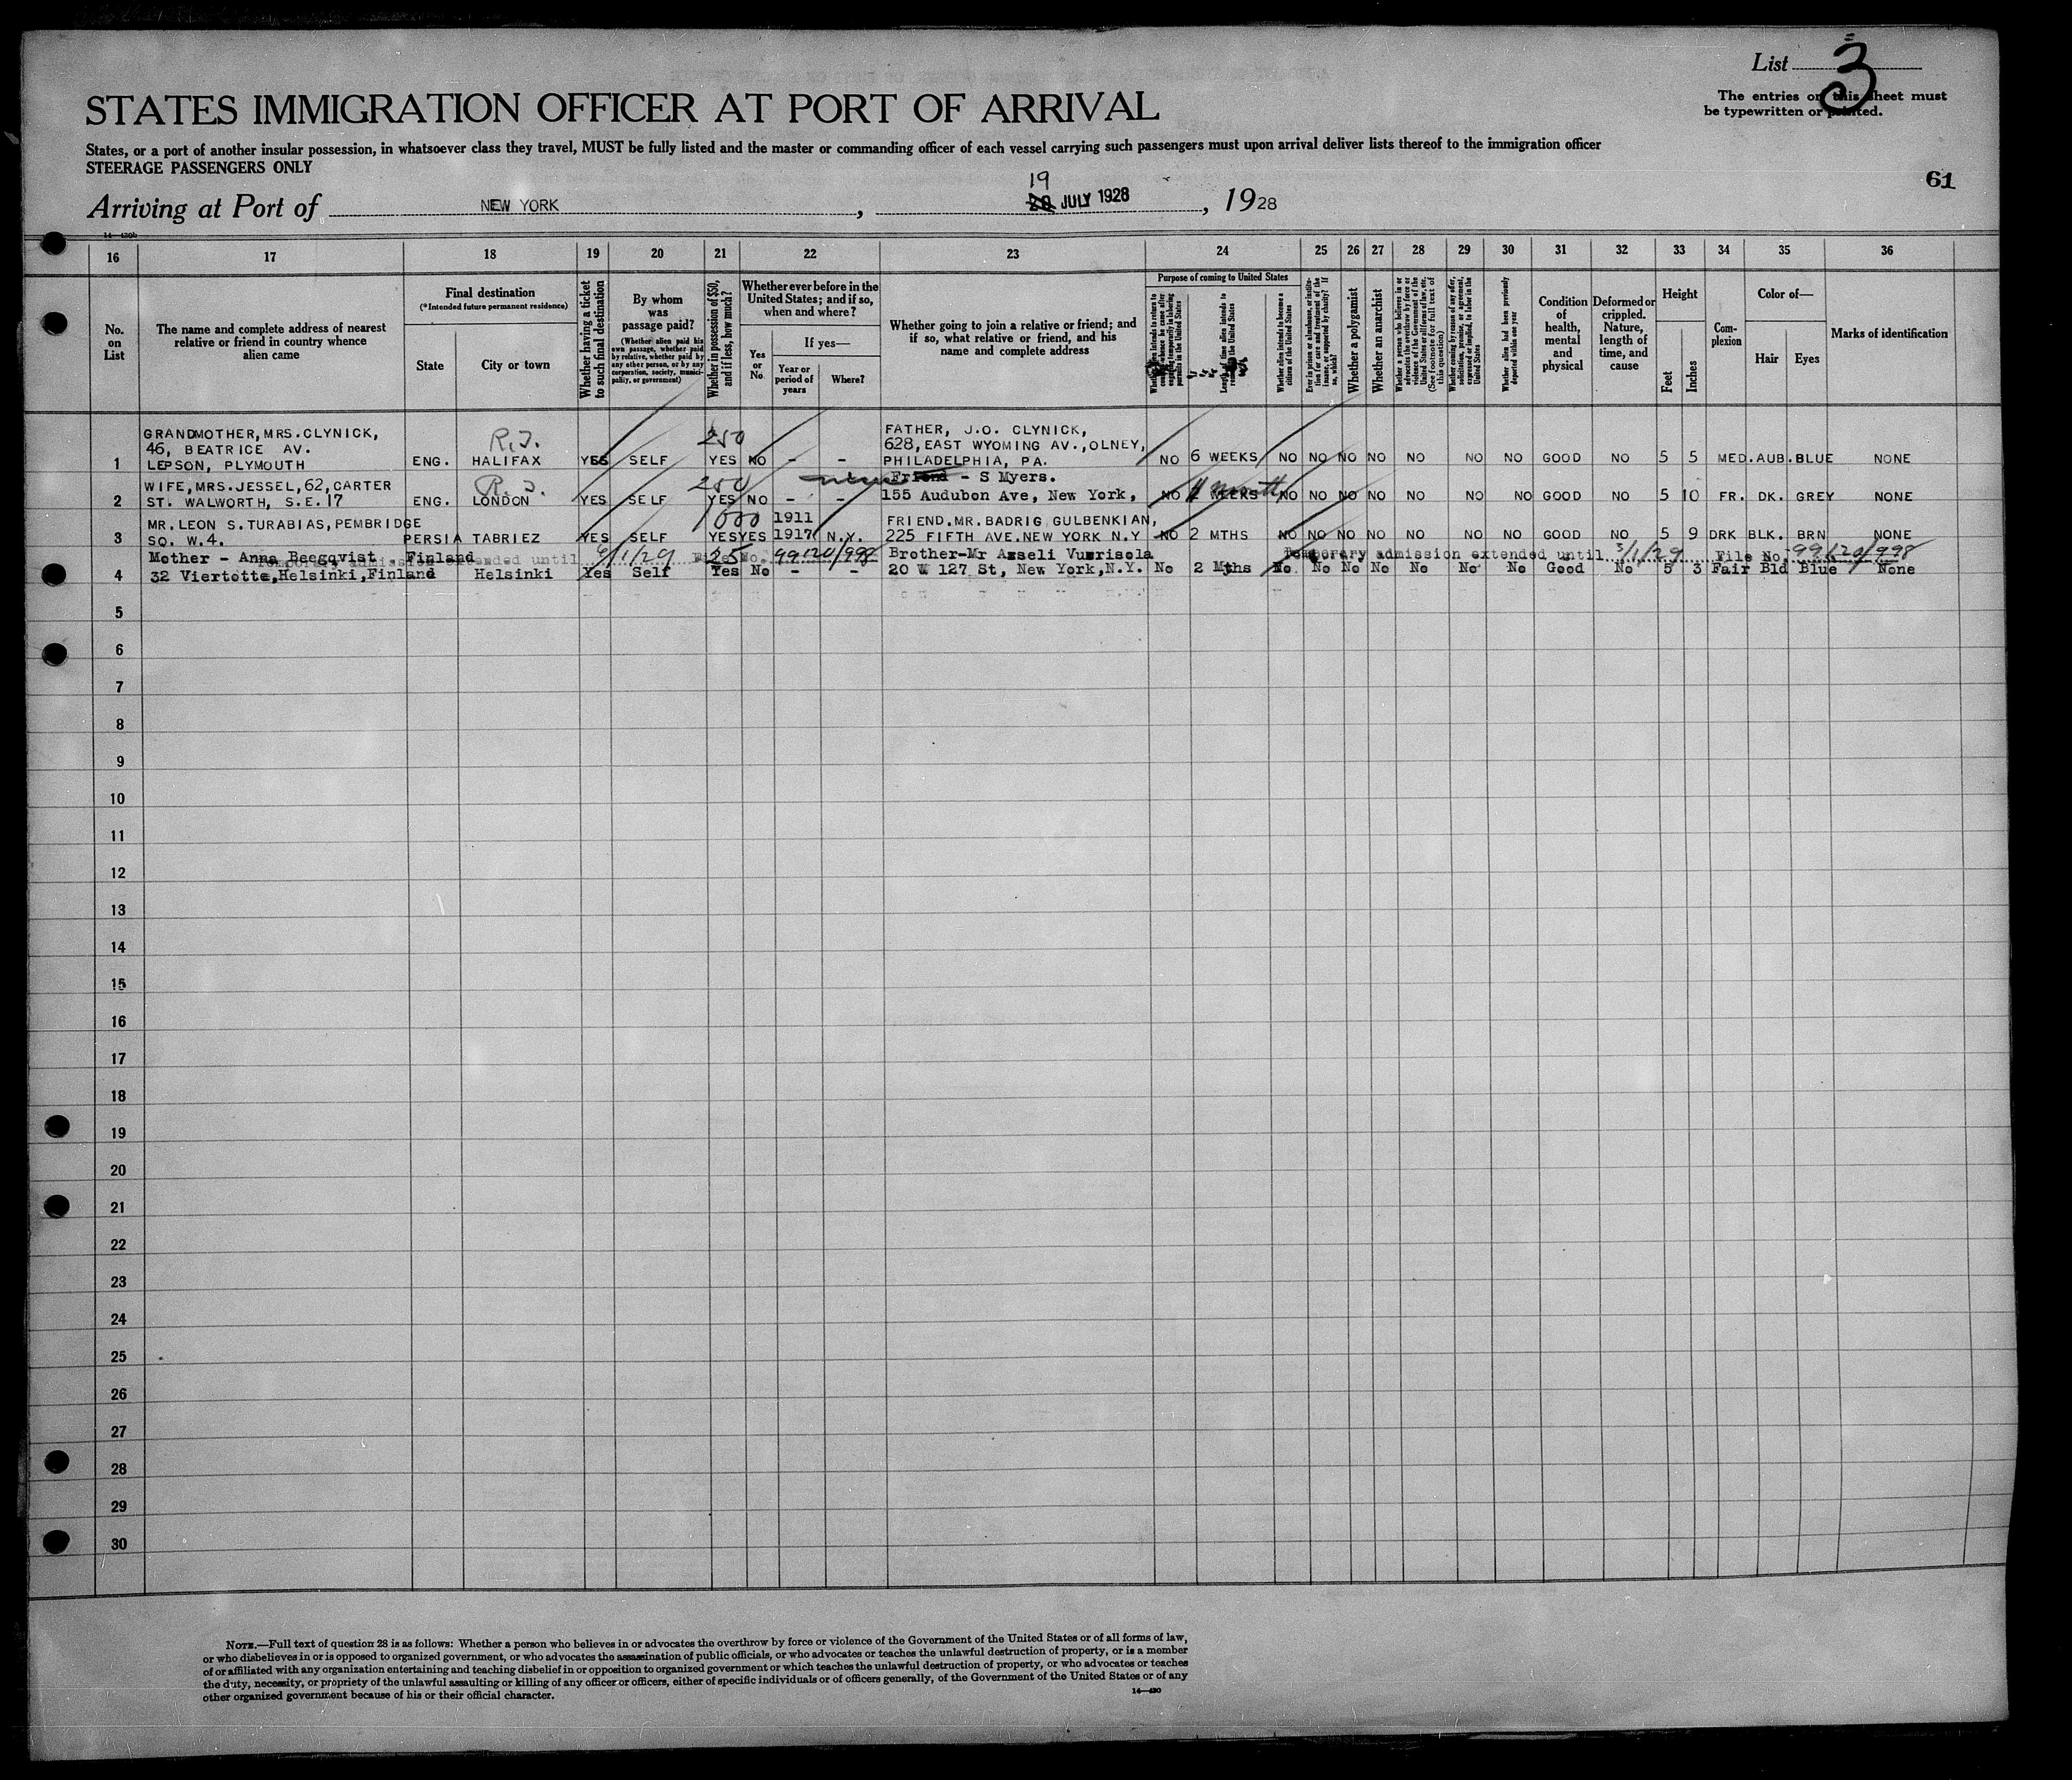 List 3
The entries on this sheet must
be typewritten or printed.
STATES IMMIGRATION OFFICER AT PORT OF ARRIVAL
States, or a port of another insular possession, in whatsoever class they travel, MUST be fully listed and the master or commanding officer of each vessel carrying such passengers must upon arrival deliver lists thereof to the immigration officer
STEERAGE PASSENGERS ONLY
61
19
Arriving at Port of NEW YORK, 20 JULY 1928, 1928
16 17 18 19 20 21 22 23 24 25 26 27 28 29 30 31 32 33 34 35 36
No. on List
The name and complete address of nearest relative or friend in country whence alien came
Final destination
(*Intended future permanent residence)
State
City or town
Whether having a ticket to such final destination
By whom was passage paid?
(Whether alien paid his own passage, whether paid by relative, whether paid by any other person, or by any corporation, society, municipality, or government)
Whether in possession of $50, and if less, how much?
Whether ever before in the United States; and if so, when and where?
Yes or No
If yes—
Year or period of years
Where?
Whether going to join a relative or friend; and if so, what relative or friend, and his name and complete address
Purpose of coming to United States
Length of time alien intends to remain in the United States
Whether alien intends to become a citizen of the United States
Whether a polygamist
Whether an anarchist
Whether alien had been previously deported within one year
Condition of health, mental and physical
Deformed or crippled. Nature, length of time, and cause
Height
Feet
Inches
Complexion
Color of—
Hair
Eyes
Marks of identification
GRANDMOTHER, MRS. CLYNICK, R.T. 250 FATHER, J.O. CLYNICK,
46, BEATRICE AV. 628, EAST WYOMING AV., OLNEY,
1 LEPSON, PLYMOUTH ENG. HALIFAX YES SELF YES NO - - PHILADELPHIA, PA. NO 6 WEEKS NO NO NO NO NO NO NO GOOD NO 5 5 MED. AUB. BLUE NONE
WIFE, MRS. JESSEL, 62, CARTER R.T. 250 Friend - S Myers.
2 ST. WALWORTH, S.E.17 ENG. LONDON YES SELF YES NO - - 155 Audubon Ave, New York, NO WEEKS NO NO NO NO NO NO NO GOOD NO 5 10 FR. DK. GREY NONE
MR. LEON S. TURABIAS, PEMBRIDGE 1000 1911 FRIEND. MR. BADRIG GULBENKIAN,
3 SQ. W.4. PERSIA TABRIEZ YES SELF YES YES 1917 N.Y. 225 FIFTH AVE. NEW YORK N.Y NO 2 MTHS NO NO NO NO NO NO NO GOOD NO 5 9 DRK BLK. BRN NONE
Mother - Anna Beegqvist Finland 25 Brother-Mr Axseli Vuorisola
Temporary admission extended until 9/1/29 File No. 99120/998 Temporary admission extended until 3/1/29 File No. 99120/998
4 32 Viertotte, Helsinki, Finland Helsinki Yes Self Yes No - - 20 W 127 St, New York, N.Y. No 2 Mths No No No No No No No Good No 5 3 Fair Bld Blue None
5
6
7
8
9
10
11
12
13
14
15
16
17
18
19
20
21
22
23
24
25
26
27
28
29
30
NOTE.—Full text of question 28 is as follows: Whether a person who believes in or advocates the overthrow by force or violence of the Government of the United States or of all forms of law,
or who disbelieves in or is opposed to organized government, or who advocates the assassination of public officials, or who advocates or teaches the unlawful destruction of property, or is a member
of or affiliated with any organization entertaining and teaching disbelief in or opposition to organized government or which teaches the unlawful destruction of property, or who advocates or teaches
the duty, necessity, or propriety of the unlawful assaulting or killing of any officer or officers, either of specific individuals or of officers generally, of the Government of the United States or of any
other organized government because of his or their official character.
14—430